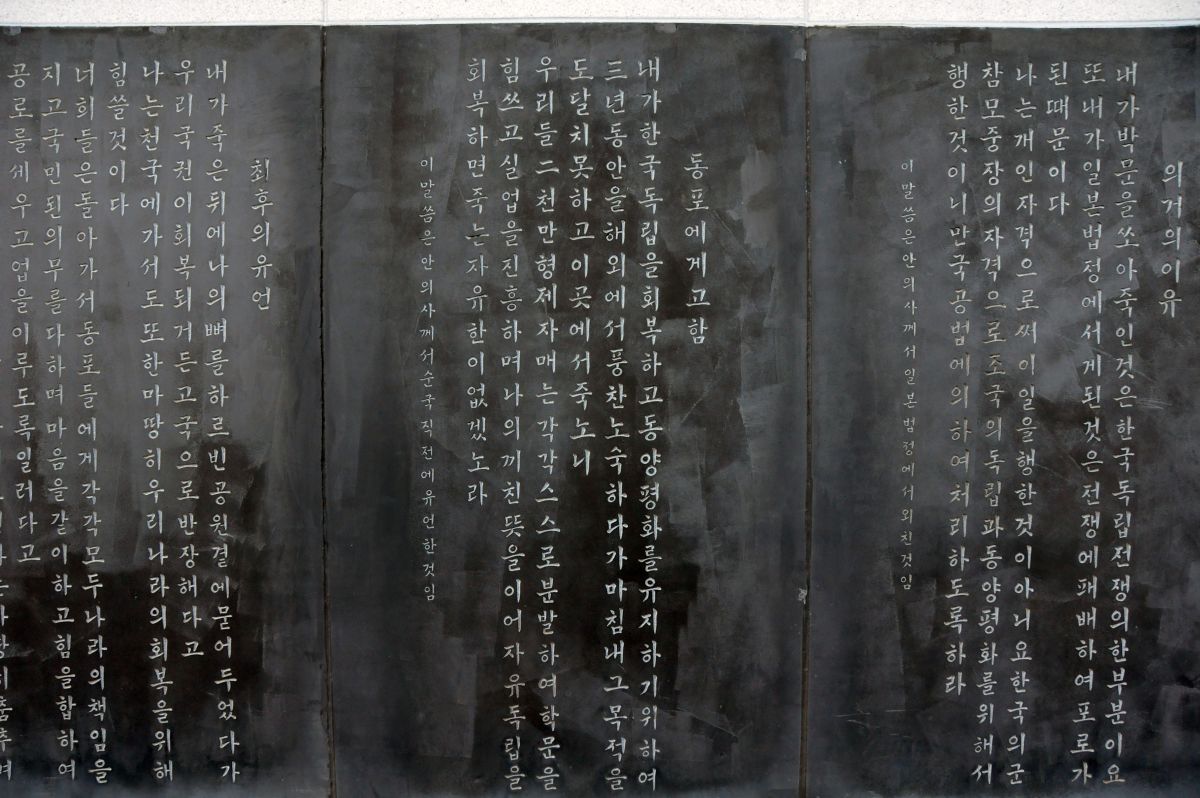 의거의이유
내가박문을쏘아죽인것은한국독립전쟁의한부분이요
또내가일본법정에서게된것은전쟁에패배하여포로가
된때문이다
나는개인자격으로써이일을행한것이아니요한국의군
참모중장의자격으로조국의독립과동양평화를위해서
행한것이니만국공법에의하여처리하도록하라
이말씀은안의사께서일본법정에서외친것임
동포에게고함
내가한국독립을회복하고동양평화를유지하기위하여
三년동안을해외에서풍찬노숙하다가마침내그목적을
도달치못하고이곳에서죽노니
우리들二천만형제자매는각각스스로분발하여학문을
힘쓰고실업을진흥하며나의끼친뜻을이어자유독립을
회복하면죽는자유한이없겠노라
이말씀은안의사께서순국직전에유언한것임
최후의유언
내가죽은뒤에나의뼈를하르빈공원곁에묻어두었다가
우리국권이회복되거든고국으로반장해다고
나는천국에가서도또한마땅히우리나라의회복을위해
힘쓸것이다
너희들은돌아가서동포들에게각각모두나라의책임을
지고국민된의무를다하며마음을같이하고힘을합하여
공로를세우고업을이루도록일러다고